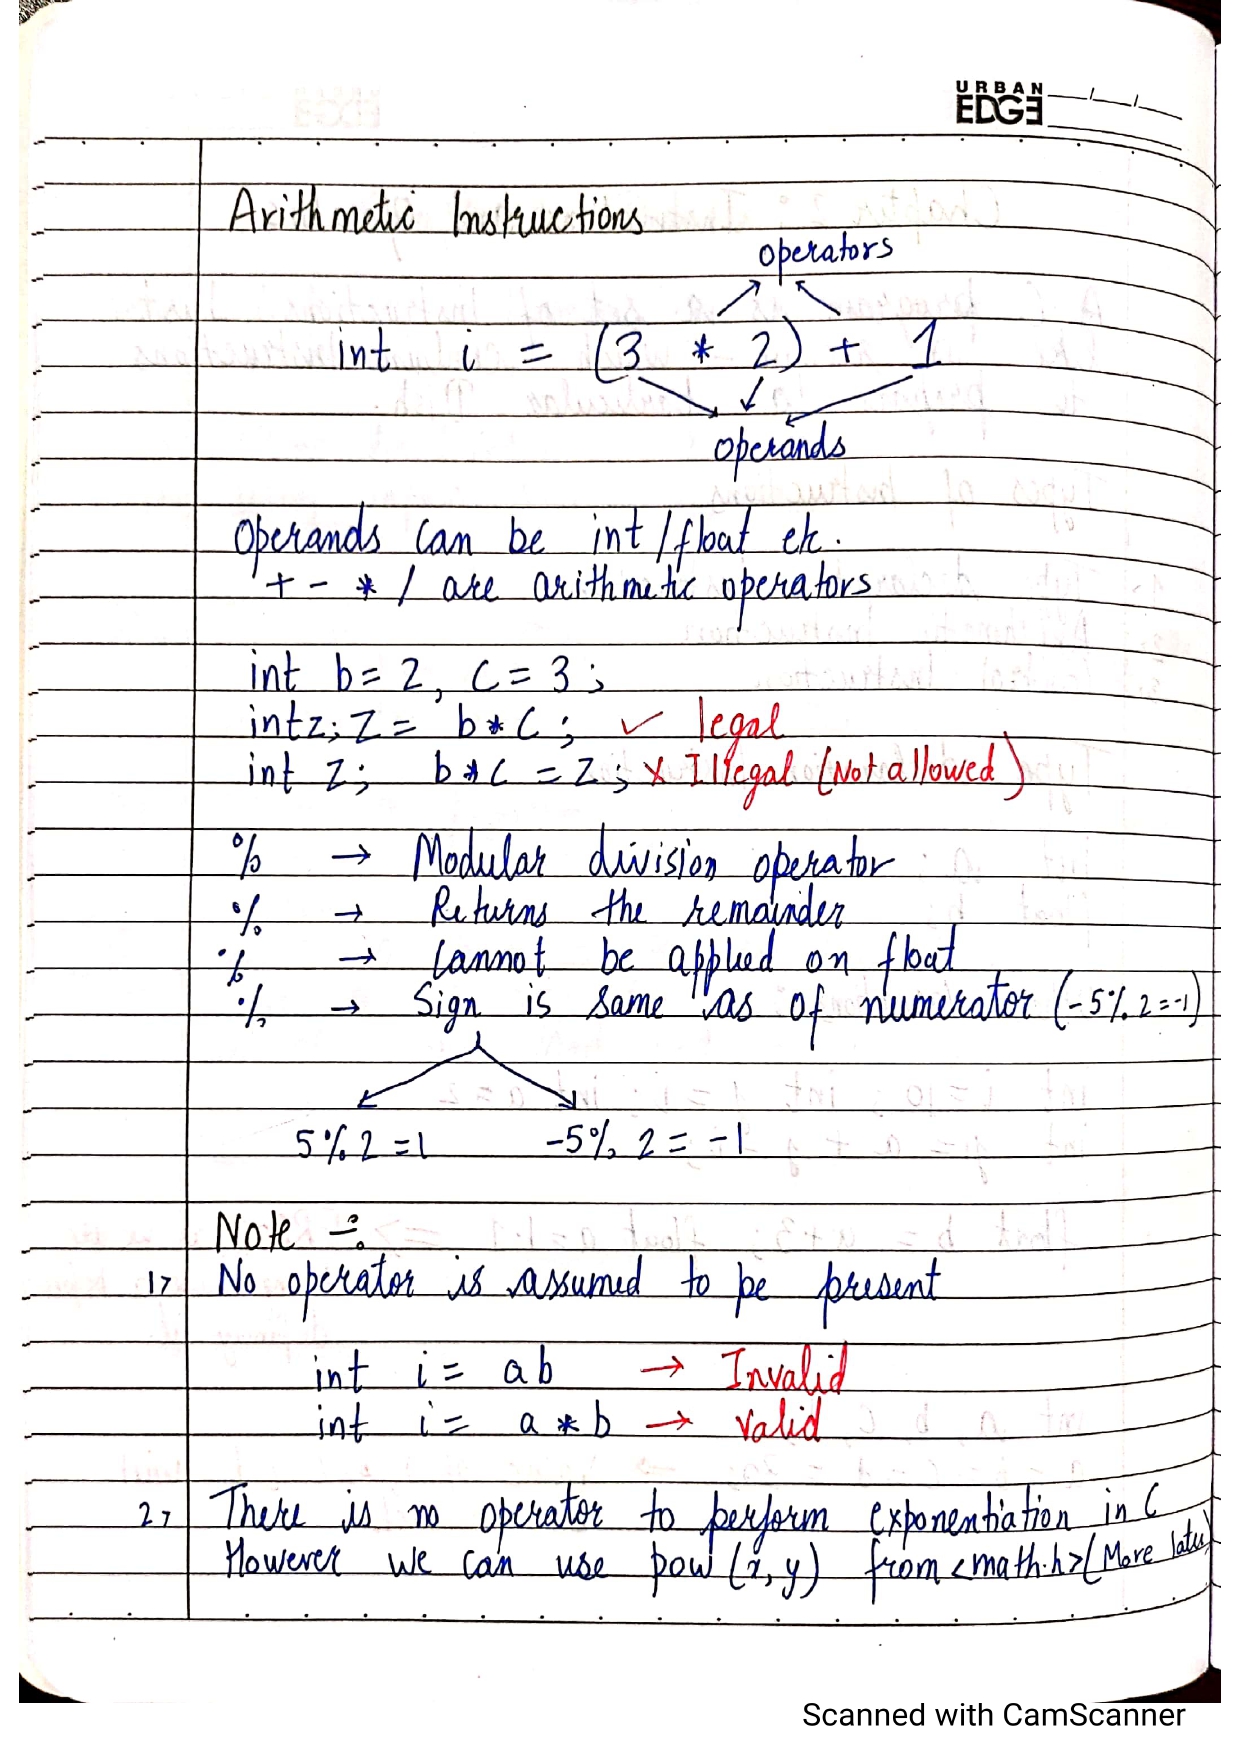 URBAN
EDGE
Arithmetic Instructions
operators
int i = (3 * 2) + 1
operands
Operands can be int/float etc.
+ - * / are arithmetic operators
int b = 2, c = 3;
int z; z = b * c; ✓ legal
int z; b * c = z; x Illegal (Not allowed)
% → Modular division operator
% → Returns the remainder
% → Cannot be applied on float
% → Sign is same as of numerator (-5%2=-1)
5%2 = 1 -5%2 = -1
Note :-
1> No operator is assumed to be present
int i = ab → Invalid
int i = a * b → valid
2> There is no operator to perform exponentiation in C
However we can use pow(x,y) from <math.h> (More later)
Scanned with CamScanner